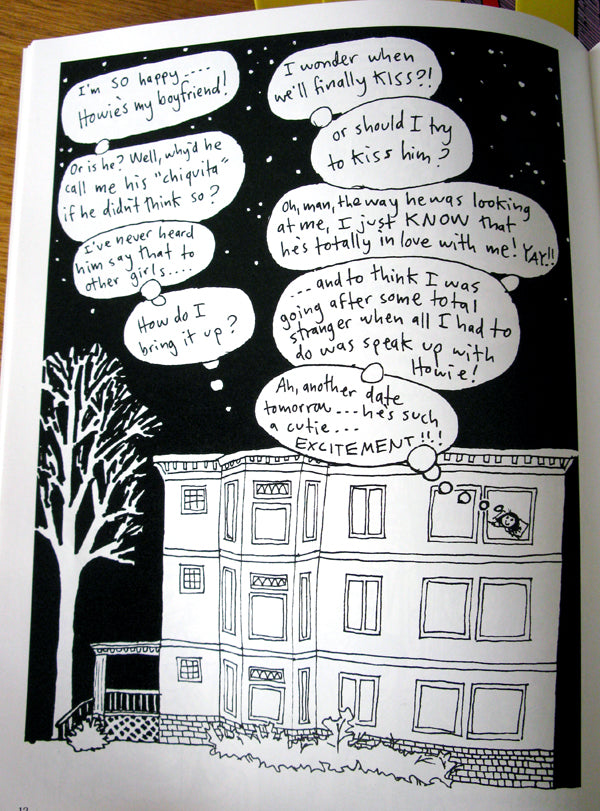 I'm SO happy....
Howie's my boyfriend!
Or is he? Well, why'd he
call me his "chiquita"
if he didn't think so?
I've never heard
him say that to
other girls....
How do I
bring it up?
I wonder when
we'll finally KISS?!
or should I try
to kiss him?
Oh, man, the way he was looking
at me, I just KNOW that
he's totally in love with me! YAY!!
...and to think I was
going after some total
stranger when all I had to
do was speak up with
Howie!
Ah, another date
tomorrow...he's such
a cutie...
EXCITEMENT!!!